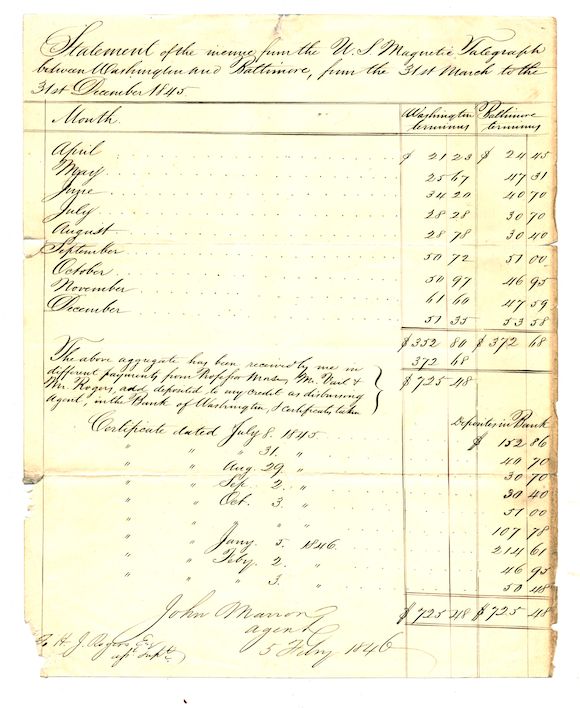 Statement of the revenue from the U. S Magnetic Telegraph
between Washington and Baltimore, from the 31st March to the
31st December 1845.
Month. Washington terminus Baltimore terminus
April $ 21 23 $ 24 45
May 25 67 47 31
June 34 20 40 70
July 28 28 30 70
August 28 78 30 40
September 50 72 51 00
October 50 97 46 95
November 61 60 47 59
December 51 35 53 58
$ 352 80 $ 372 68
372 68
$ 725 48
The above aggregate has been received by me in
different payments from Professor Morse, Mr. Vail &
Mr. Rogers, and deposited to my credit as disbursing
Agent, in the Bank of Washington, & certificate taken
Deposites in Bank
Certificate dated July 8. 1845. $ 152 86
" " 31. " 40 70
" " Aug 29. " 30 70
" " Sep 2. " 30 40
" " Oct. 3. " 51 00
" " " " " 107 78
" " Jany. 5. 1846. 214 61
" " Feby. 2. " 46 95
" " " 3. " 50 48
$ 725 48 $ 725 48
John Marron
agent
5 Feby 1846
To H. J. Rogers, Esq